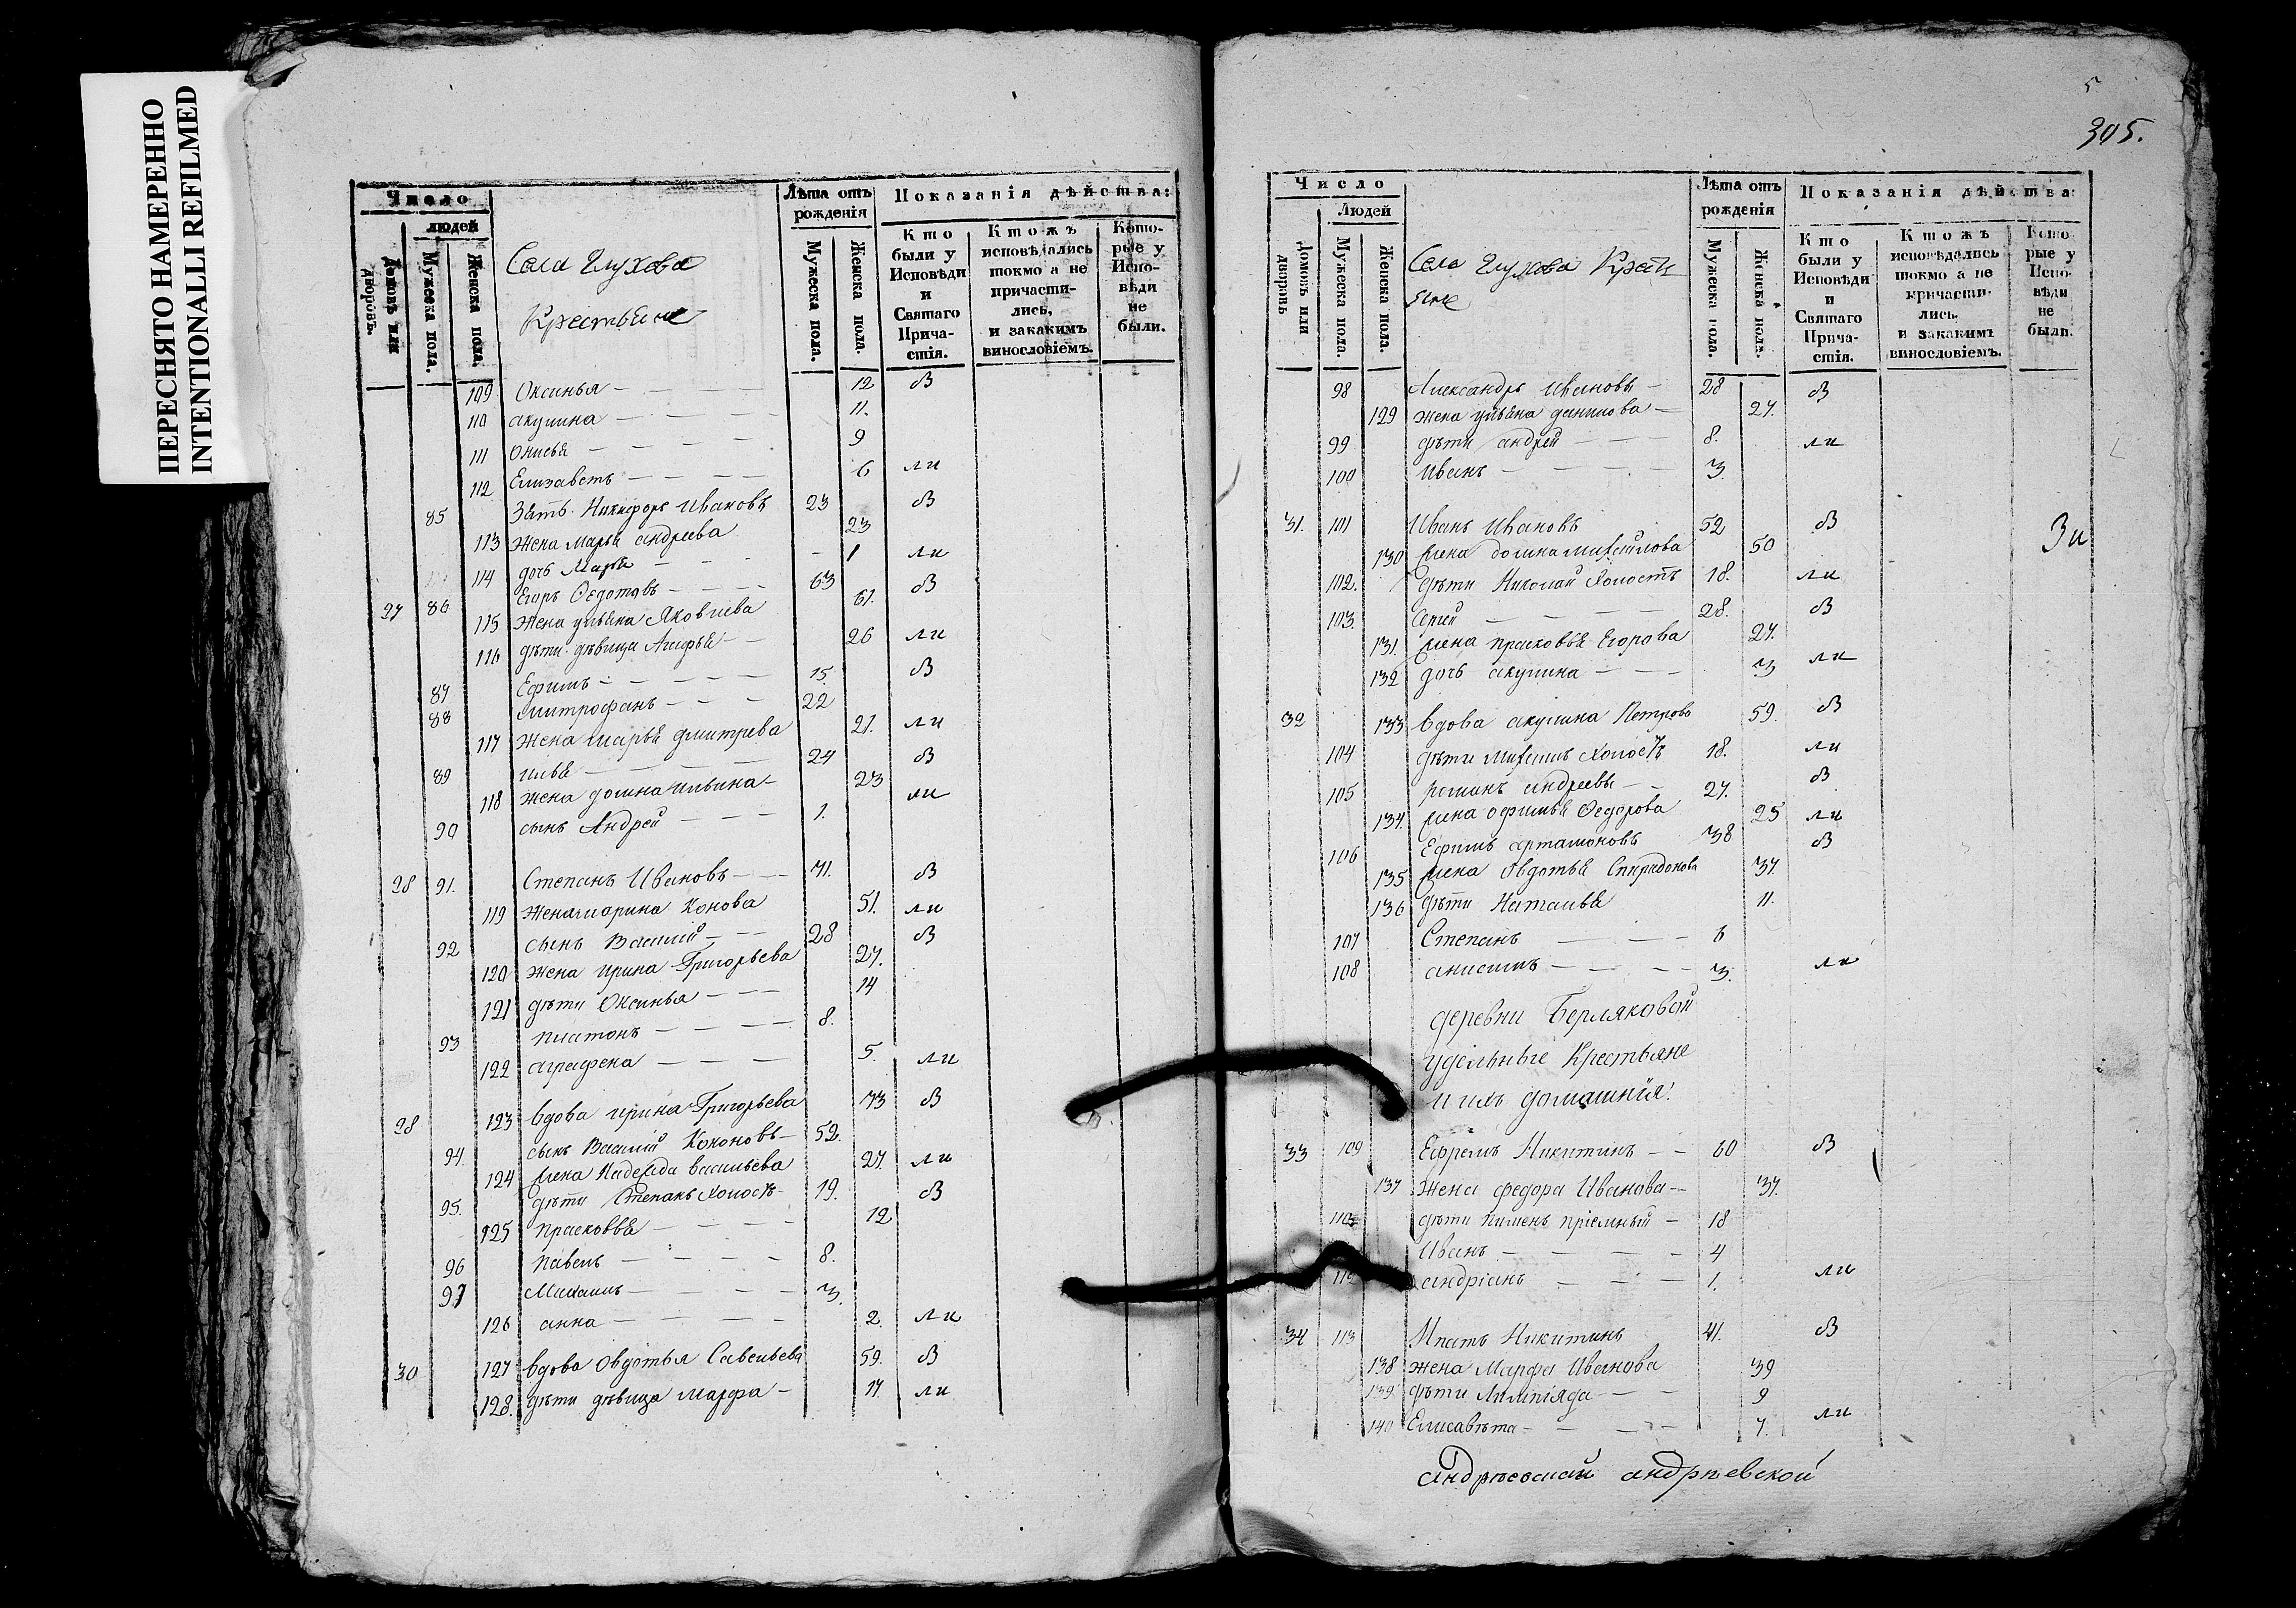 ПЕРЕСНЯТО НАМЕРЕННО
INTENTIONALLI REFILMED
Число
людей
Домовъ или дворовъ.
Мужеска пола.
Женска пола.
Села Глухова
Крестьяне
Лѣта отъ рожденія
Мужеска пола.
Женска пола.
Показанія дѣйства:
Кто были у Исповѣди и Святаго Прича-стія.
Ктожъ исповѣдались токмо а не причасти-лись, и закакимъ винословіемъ.
Кото-рые у Испо-вѣди не были.
109 Оксинья 12 В
110 акулина 11.
111 Онисья 9
112 Елизаветъ 6 ли
85 Зять Никифоръ Ивановъ 23 В
113 Жена Марья андреева 23
114 дочь Марья 1 ли
27 86 Егоръ Ѳедотовъ 63 В
115 Жена ульяна Яковлева 61.
116 дѣти дѣвица Агафья 26 ли
87 Ефимъ 15. В
88 митрофанъ 22
117 Жена марья дмитрева 21. ли
89 илья 24 В
118 жена домна ильина 23
90 сынъ Андрей 1. ли
28 91. Степанъ Ивановъ 71. В
119 Жена марина Конова 51. ли
92 сынъ Василий 28 В
120 жена ирина Григорьева 27.
121 дѣти Оксинья 14
93 платонъ 8.
122 аграфена 5. ли
28 123 вдова ирина Григорьева 73 В
94. сынъ Василий Кононовъ 52.
124 жена Надежда васильева 27. ли
95. дѣти Степанъ Холостъ 19. В
125 прасковья 12
96 павелъ 8.
97 Михаилъ 3.
126 анна 2. ли
30 127 вдова Овдотья Савельева 59. В
128. дѣти дѣвица марфа 17. ли
5
305.
Число
Людей
Домовъ или дворовъ
Мужеска пола.
Женска пола.
Села Глухова Крестьяне
Лѣта отъ рожденія
Мужеска пола.
Женска пола.
Показанія дѣйства:
Кто были у Исповѣди и Святаго Прича-стія.
Ктожъ исповѣдались токмо а не причасти-лись, и закакимъ винословіемъ.
Кото-рые у Испо-вѣди не были.
98 Александръ Ивановъ 28 В
129 жена ульяна данилова 27.
99 дѣти андрей 8. ли
100 Иванъ 3.
31. 101 Иванъ Ивановъ 52 В
130 жена домна михайлова 50
102. дѣти Николай Холостъ 18. ли
103. сергей 28. В
131. жена прасковья Егорова 27.
132 дочь акулина 3 ли
Зи
32 133 вдова акулина Петрова 59. В
104 дѣти михаилъ Холостъ 18. ли
105 романъ андреевъ 27. В
134. жена офимья Ѳедорова 25 ли
106 Ефимъ артамоновъ 38 В
135 жена Овдотья Спиридонова 37.
136 дѣти Наталья 11.
107 Степанъ 6
108 анисимъ 3. ли
деревни Берляковой
удѣльные Крестьяне
и ихъ домашнія:
33 109 Ефремъ Никитинъ 60 В
137 Жена федора Иванова 37.
110 дѣти пименъ пріемный 18
Иванъ 4
112 андріанъ 1. ли
34 113 Ипатъ Никитинъ 41. В
138 жена Марфа Иванова 39
139 дѣти Лимпіяда 9
140 Елисавѣта 7. ли
андрѣевской